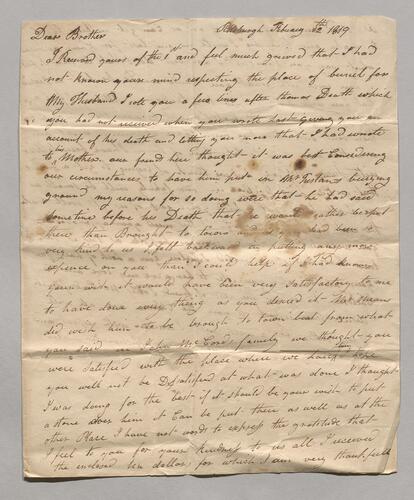 Dear Brother Pittsburgh February 12th 1819
I Received yours of the 1st and feel much grieved that I had
not known your mind respecting the place of buriel for
My Husband I rote you a few lines after thomas Death which
you had not received when you wrote last Giveing you an
account of his death and letting you now that I had wrote
to his Mother. our friend here thought it was best Considering
our circumstances to have him put in Mr burying
ground my reasons for so doing were that he had said
sometime before his Death that he wanted rather be put
there than Brought to town and as you had been so
very kind to us I felt backward in putting any more
expence on you than I could help if I had known
your wish it would have been very Satisfactory to me
to have done every thing as you desired it Mr
did wish him to be brough to town but from what
you said John McCords family we thought you
were Satisfied with the place where we have him I hope
you well not be Disatisfied at what was done I thought
I was doing for the best if it should be your wish to put
a stone over him it Can be put there as well as at the
other Place I have not words to express the gratitude that
I feel to you for your kindness to us all I received
the enclosed ten dollars for which I am very thankfull